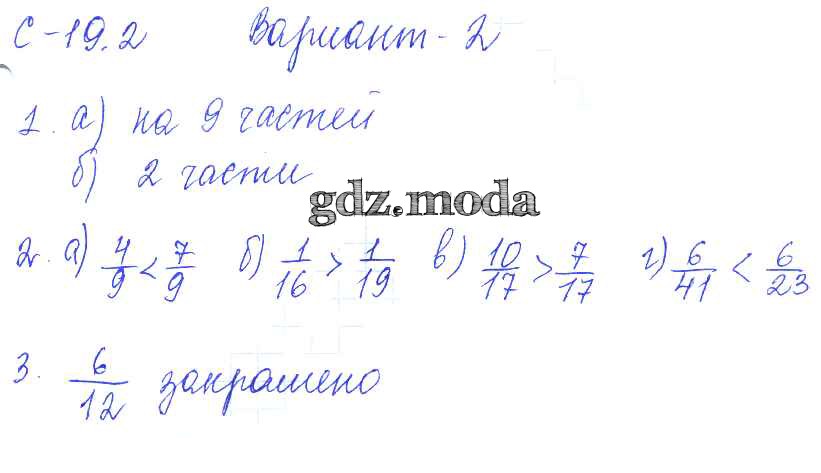 С-19.2 Вариант-2
1. а) на 9 частей
б) 2 части
gdz.moda
2. а) 4/9 < 7/9 б) 1/16 > 1/19 в) 10/17 > 7/17 г) 6/41 < 6/23
3. 6/12 закрашено